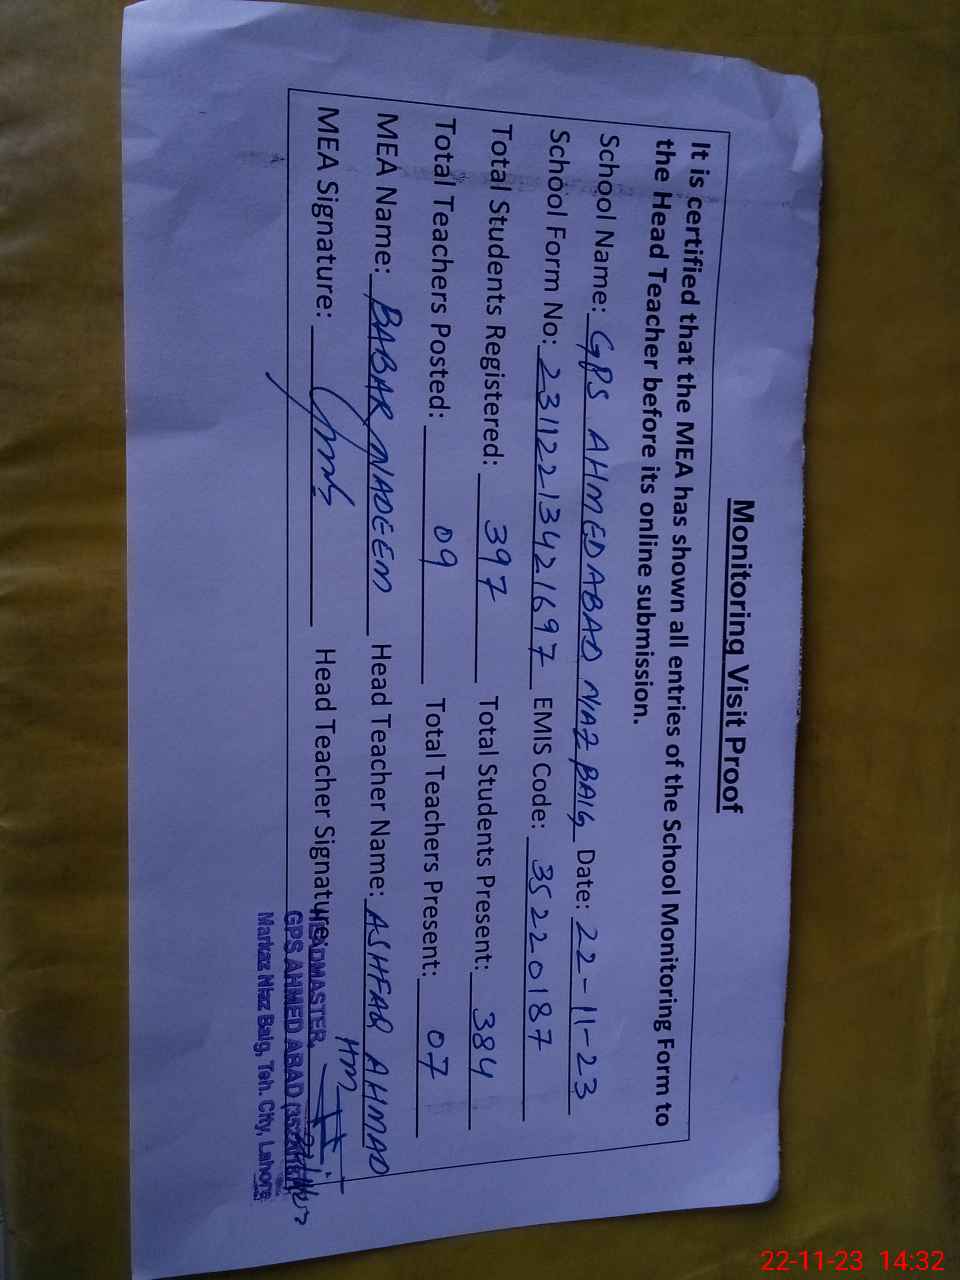 Monitoring Visit Proof
It is certified that the MEA has shown all entries of the School Monitoring Form to
the Head Teacher before its online submission.
School Name: GPS AHMEDABAD NAZ BAIG Date: 22-11-23
School Form No: 23112213421697 EMIS Code: 35220187
Total Students Registered: 397 Total Students Present: 384
Total Teachers Posted: 09 Total Teachers Present: 07
MEA Name: BABAR NADEEM Head Teacher Name: ASHFAQ AHMAD
MEA Signature: Head Teacher Signature:
HM
HEADMASTER,
GPS AHMED ABAD
Markaz Niaz Baig, Teh. City, Lahore
22-11-23 14:32